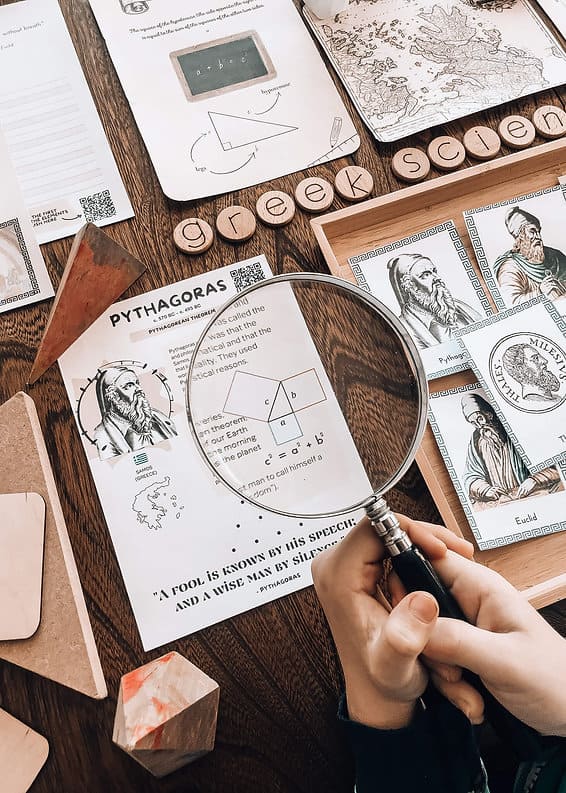 without breath"
The square of the hypotenuse (the side opposite the right
is equal to the sum of the squares of the other two sides.
a² + b² = c²
hypotenuse
leg
THE FIRST
greek scien
PYTHAGORAS
c. 570 BC - c. 495 BC
PYTHAGOREAN THEOREM
Pythagoras
and philoso
Samos
mathematical
and
was called the
was that the
matical and that the
uality. They used
tical reasons.
c b
a
veries.
en theorem
of our Earth
e morning
s the planet
c² = a² + b²
st man to call himself a
dom").
SAMOS
(GREECE)
"A FOOL IS KNOWN BY HIS SPEECH
AND A WISE MAN BY SILENCE
- PYTHAGORAS
Pythag
THALES MILESIVS
Euclid